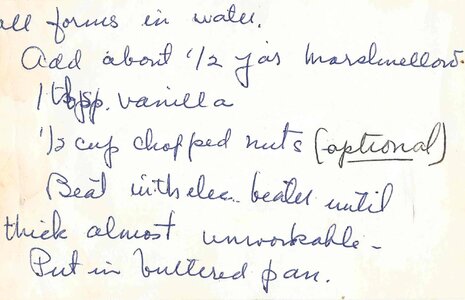 all forms in water.
Add about 1/2 jar Marshmellow.
1 tbsp. vanilla
1/2 cup chopped nuts (optional)
Beat with elec. beater until
thick almost unworkable -
Put in buttered pan.